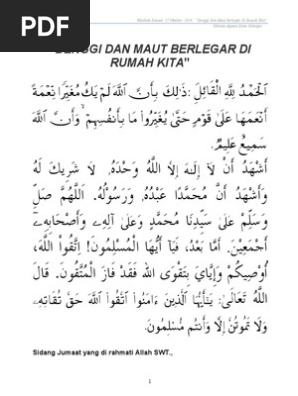 PDF
"DENGGI DAN MAUT BERLEGAR DI
RUMAH KITA"
الْحَمْدُ لِلَّهِ الْقَائِلِ :ذَلِكَ بِأَنَّ اللَّهَ لَمْ يَكُ مُغَيِّرًا نِعْمَةً
أَنْعَمَهَا عَلَى قَوْمٍ حَتَّى يُغَيِّرُوا مَا بِأَنفُسِهِمْ وَأَنَّ اللَّهَ
سَمِيعٌ عَلِيمٌ.
أَشْهَدُ أَنْ لَا إِلَهَ إِلَّا اللَّهُ وَحْدَهُ, لَا شَرِيكَ لَهُ
وَأَشْهَدُ أَنَّ مُحَمَّدًا عَبْدُهُ, وَرَسُولُهُ. اَللَّهُمَّ صَلِّ
وَسَلِّمْ عَلَى سَيِّدِنَا مُحَمَّدٍ وَعَلَى آلِهِ وَأَصْحَابِهِ
أَجْمَعِيْنَ. أَمَّا بَعْدُ، فَيَا أَيُّهَا الْمُسْلِمُونَ! اِتَّقُوا اللَّهَ،
أُوصِيكُمْ وَإِيَّايَ بِتَقْوَى الله فَقَدْ فَازَ الْمُتَّقُونَ. قَالَ
اللَّهُ تَعَالَى: يَأَيُّهَا الَّذِينَ ءَامَنُوا اتَّقُوا اللَّهَ حَقَّ تُقَاتِهِ,
وَلَا تَمُوتُنَّ إِلَّا وَأَنتُم مُسْلِمُونَ.
Sidang Jumaat yang di rahmati Allah SWT.,
1